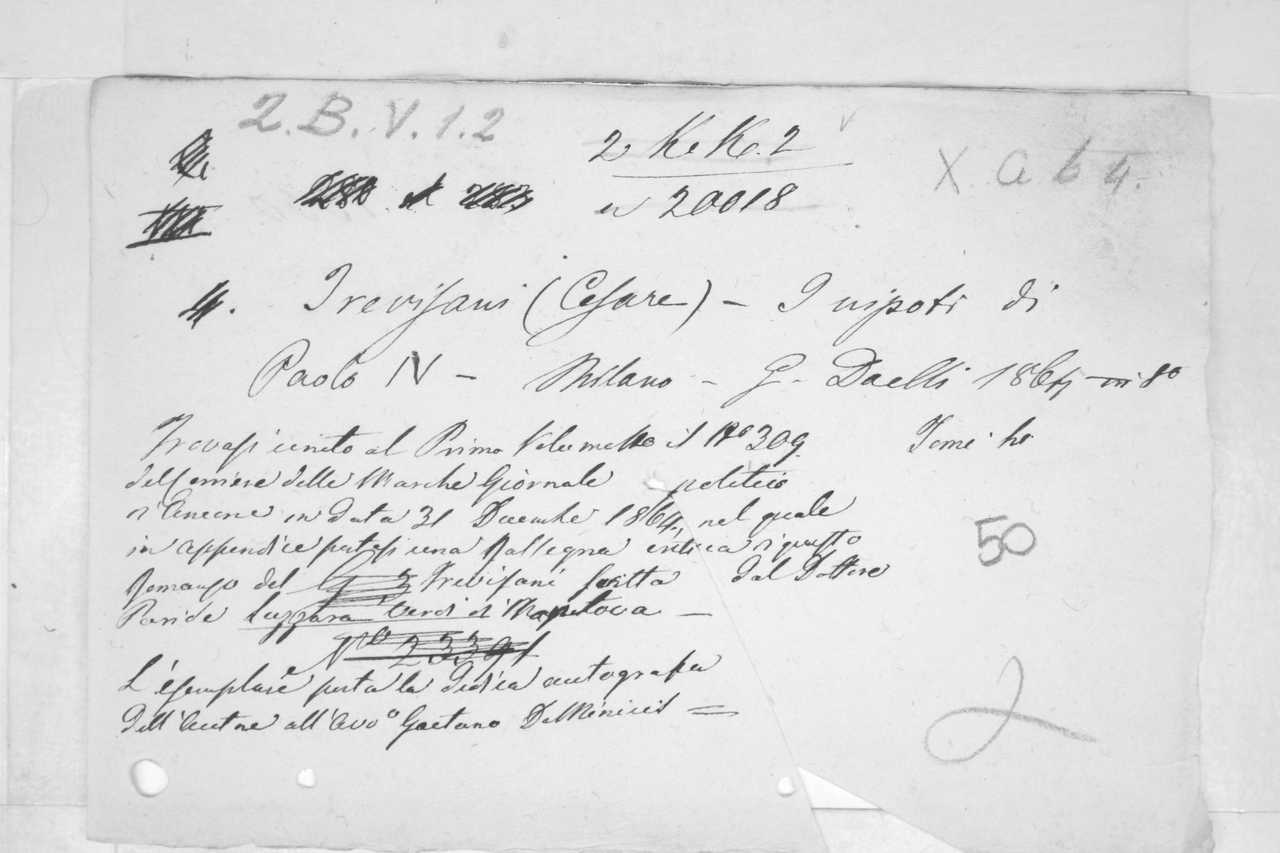 2. B. V. 1. 2
2 KeKe. 2
X. a b 4.
n 20018
4. Trevisani (Cesare) - I nipoti di
Paolo IV - Milano - G. Daelli 1864 - in 8º
Trovasi unito al Primo Volumetto il Nº 309. Tomi
del Corriere delle Marche Giornale politico
d'Ancona in data 31 Decembre 1864, nel quale
in appendice una Rassegna critica di questo
Romanzo del Trevisani scritta dal Dottore
Paride Luzzara Verdi di Mantova -
Nro 23391
50
L'esemplare porta la dedica autografa
dell'Autore all'Avvº Gaetano DeMinicis =
2